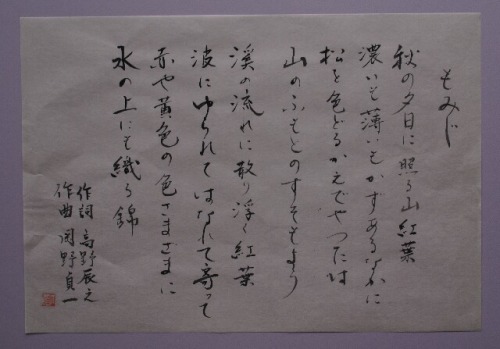 もみじ
秋の夕日に照る山紅葉
濃いも薄いもかずあるなかに
松を色どるかえでやつたは
山のふもとのすそもよう
溪の流れに散り浮く紅葉
波にゆられてはなれて寄って
赤や黄色の色さまざまに
水の上にも織る錦
作詞 高野辰之
作曲 岡野貞一